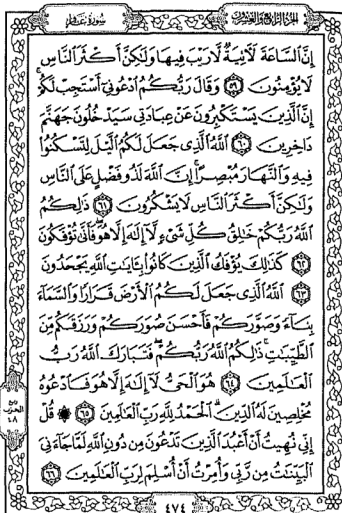 الجزء الرابع والعشرون
سورة غافر
إِنَّ السَّاعَةَ لَآتِيَةٌ لَّا رَيْبَ فِيهَا وَلَٰكِنَّ أَكْثَرَ النَّاسِ
لَا يُؤْمِنُونَ ٥٩ وَقَالَ رَبُّكُمُ ادْعُونِي أَسْتَجِبْ لَكُمْ
إِنَّ الَّذِينَ يَسْتَكْبِرُونَ عَنْ عِبَادَتِي سَيَدْخُلُونَ جَهَنَّمَ
دَاخِرِينَ ٦٠ اللَّهُ الَّذِي جَعَلَ لَكُمُ اللَّيْلَ لِتَسْكُنُوا
فِيهِ وَالنَّهَارَ مُبْصِرًا إِنَّ اللَّهَ لَذُو فَضْلٍ عَلَى النَّاسِ
وَلَٰكِنَّ أَكْثَرَ النَّاسِ لَا يَشْكُرُونَ ٦١ ذَٰلِكُمُ
اللَّهُ رَبُّكُمْ خَالِقُ كُلِّ شَيْءٍ لَّا إِلَٰهَ إِلَّا هُوَ فَأَنَّىٰ تُؤْفَكُونَ
٦٢ كَذَٰلِكَ يُؤْفَكُ الَّذِينَ كَانُوا بِآيَاتِ اللَّهِ يَجْحَدُونَ
٦٣ اللَّهُ الَّذِي جَعَلَ لَكُمُ الْأَرْضَ قَرَارًا وَالسَّمَاءَ
بِنَاءً وَصَوَّرَكُمْ فَأَحْسَنَ صُوَرَكُمْ وَرَزَقَكُم مِّنَ
الطَّيِّبَاتِ ذَٰلِكُمُ اللَّهُ رَبُّكُمْ فَتَبَارَكَ اللَّهُ رَبُّ
الْعَالَمِينَ ٦٤ هُوَ الْحَيُّ لَا إِلَٰهَ إِلَّا هُوَ فَادْعُوهُ
مُخْلِصِينَ لَهُ الدِّينَ الْحَمْدُ لِلَّهِ رَبِّ الْعَالَمِينَ ٦٥ ۞ قُلْ
إِنِّي نُهِيتُ أَنْ أَعْبُدَ الَّذِينَ تَدْعُونَ مِن دُونِ اللَّهِ لَمَّا جَاءَنِيَ
الْبَيِّنَاتُ مِن رَّبِّي وَأُمِرْتُ أَنْ أُسْلِمَ لِرَبِّ الْعَالَمِينَ ٦٦
الحزب
٤٨
٤٧٤